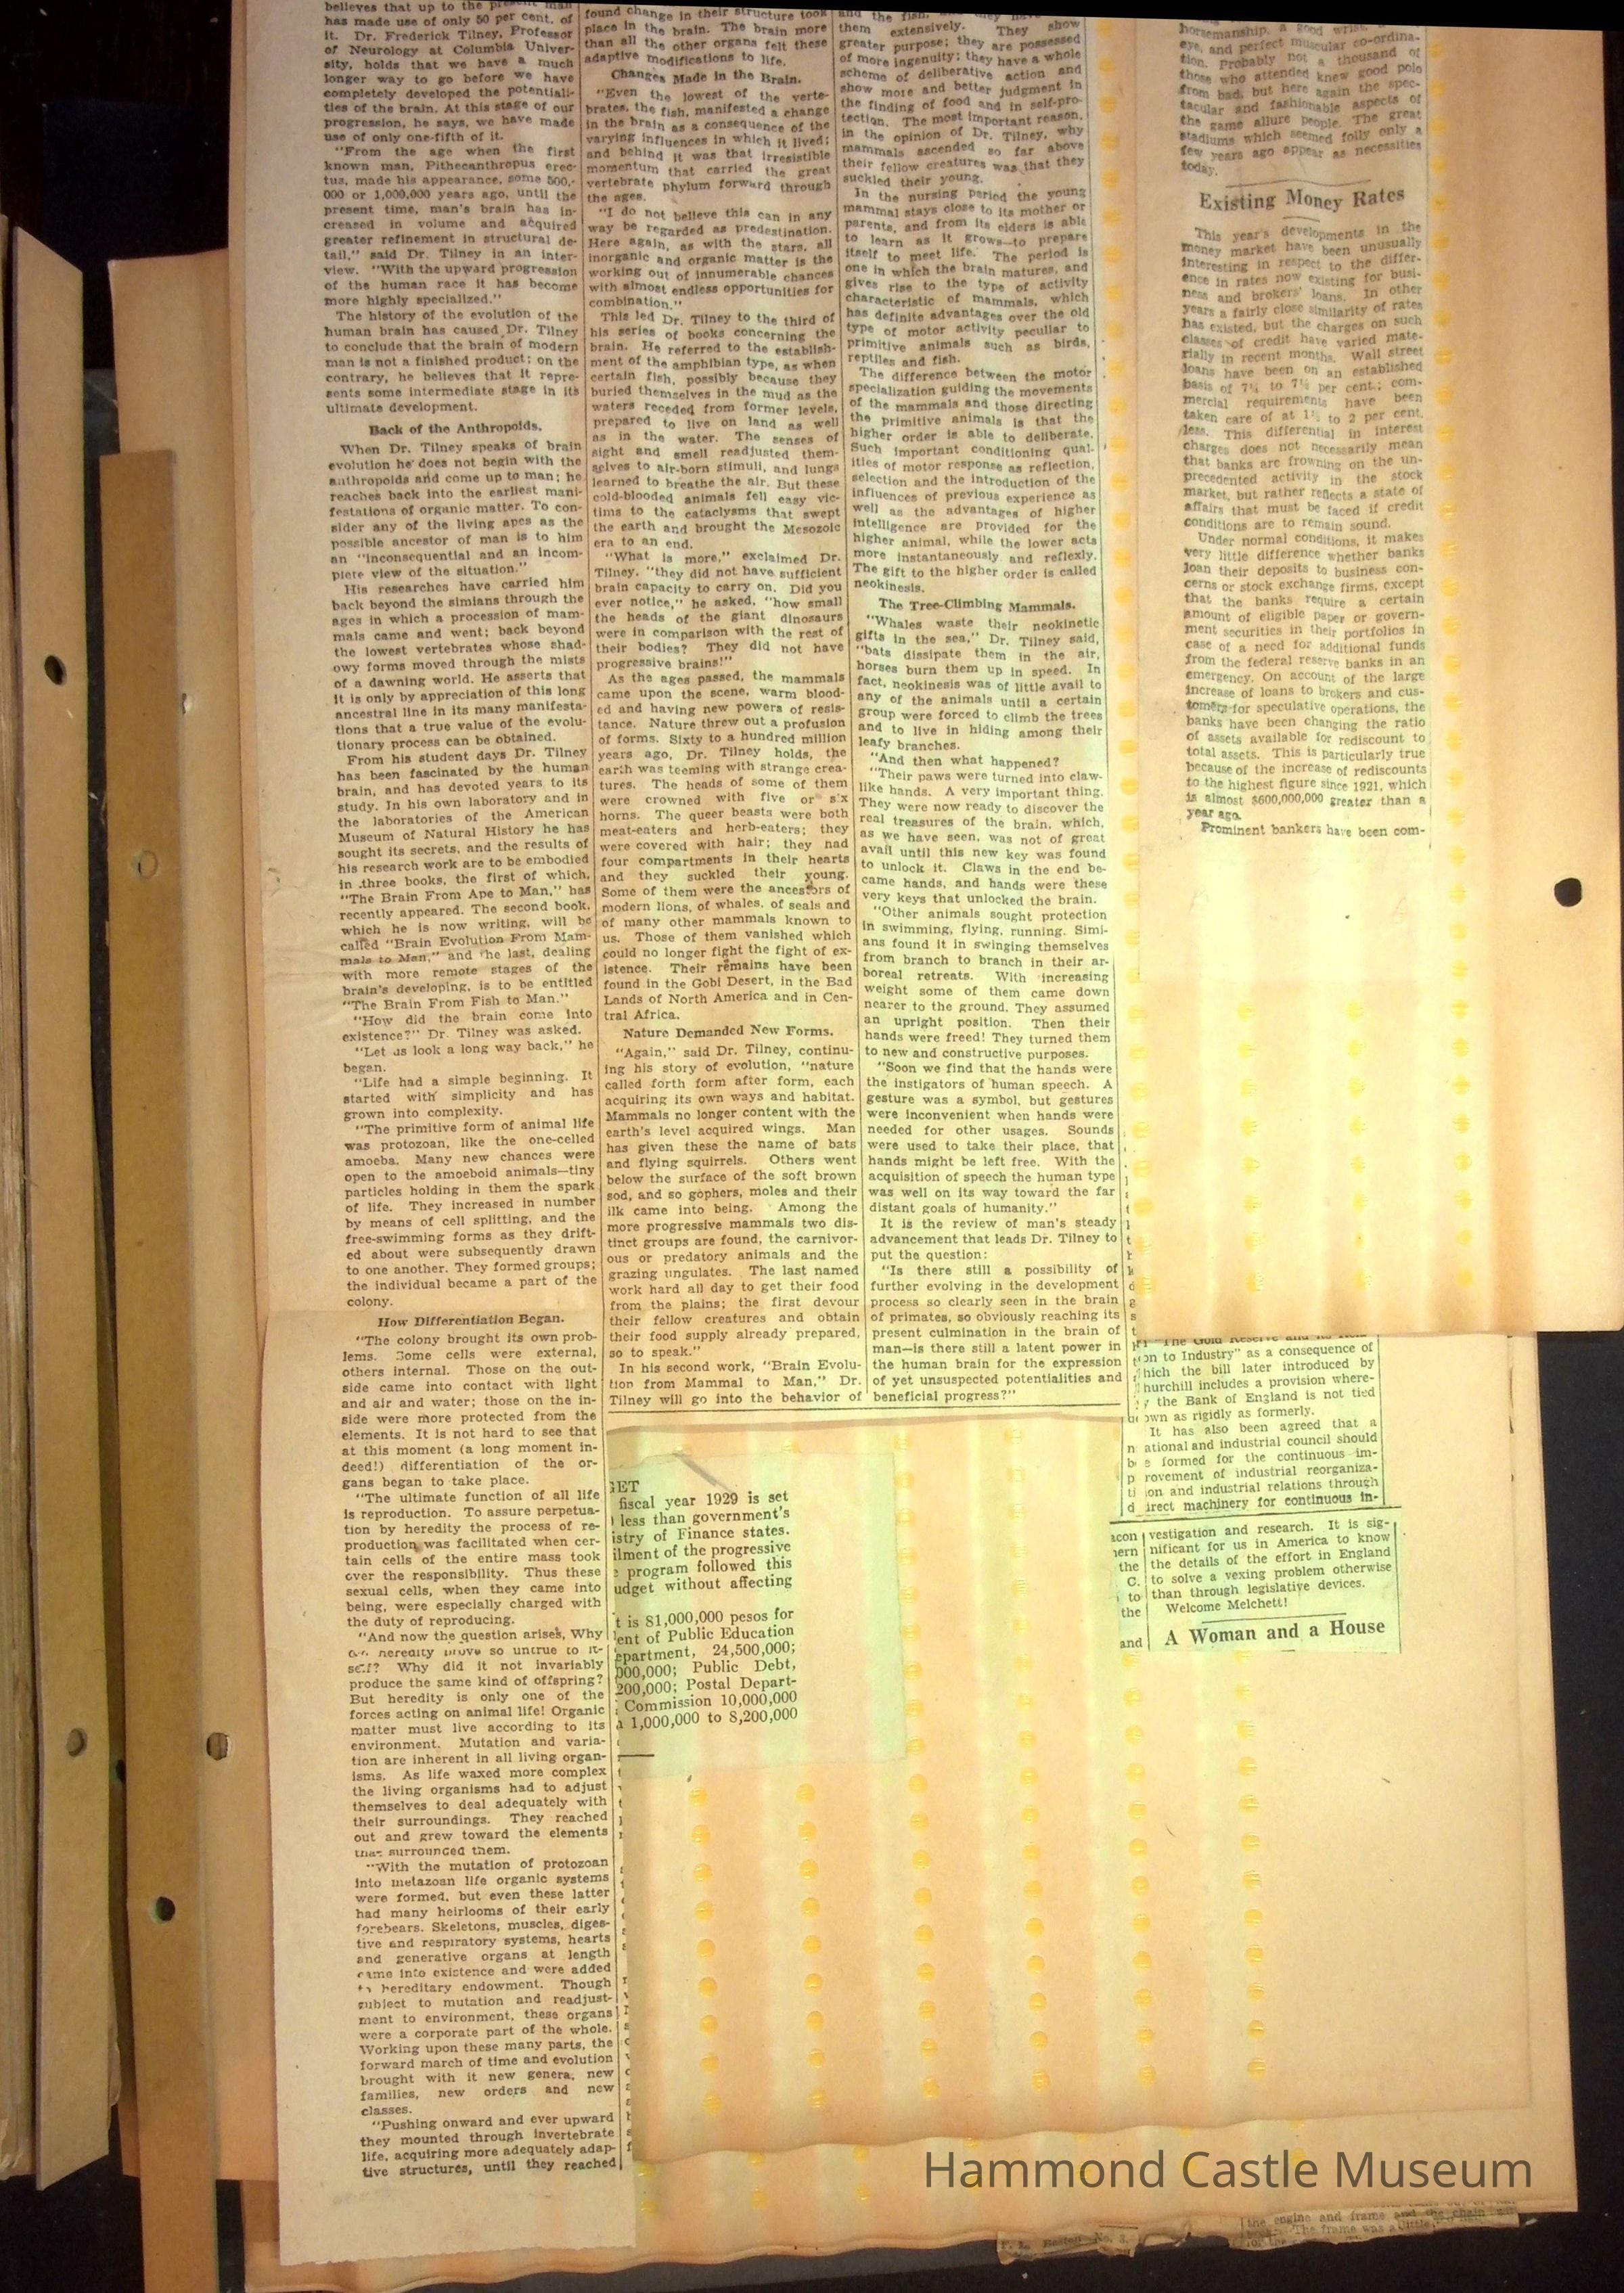 believes that up to the present man
has made use of only 50 per cent. of
it. Dr. Frederick Tilney, Professor
of Neurology at Columbia Univer-
sity, holds that we have a much
longer way to go before we have
completely developed the potentiali-
ties of the brain. At this stage of our
progression, he says, we have made
use of only one-fifth of it.
"From the age when the first
known man, Pithecanthropus erec-
tus, made his appearance, some 500,-
000 or 1,000,000 years ago, until the
present time, man's brain has in-
creased in volume and acquired
greater refinement in structural de-
tail," said Dr. Tilney in an inter-
view. "With the upward progression
of the human race it has become
more highly specialized."
The history of the evolution of the
human brain has caused Dr. Tilney
to conclude that the brain of modern
man is not a finished product; on the
contrary, he believes that it repre-
sents some intermediate stage in its
ultimate development.
Back of the Anthropoids.
When Dr. Tilney speaks of brain
evolution he does not begin with the
anthropoids and come up to man; he
reaches back into the earliest mani-
festations of organic matter. To con-
sider any of the living apes as the
possible ancestor of man is to him
an "inconsequential and an incom-
plete view of the situation."
His researches have carried him
back beyond the simians through the
ages in which a procession of mam-
mals came and went; back beyond
the lowest vertebrates whose shad-
owy forms moved through the mists
of a dawning world. He asserts that
it is only by appreciation of this long
ancestral line in its many manifesta-
tions that a true value of the evolu-
tionary process can be obtained.
From his student days Dr. Tilney
has been fascinated by the human
brain, and has devoted years to its
study. In his own laboratory and in
the laboratories of the American
Museum of Natural History he has
sought its secrets, and the results of
his research work are to be embodied
in three books, the first of which,
"The Brain From Ape to Man," has
recently appeared. The second book,
which he is now writing, will be
called "Brain Evolution From Mam-
mals to Man," and the last, dealing
with more remote stages of the
brain's developing, is to be entitled
"The Brain From Fish to Man."
"How did the brain come into
existence?" Dr. Tilney was asked.
"Let us look a long way back," he
began.
"Life had a simple beginning. It
started with simplicity and has
grown into complexity.
"The primitive form of animal life
was protozoan, like the one-celled
amoeba. Many new chances were
open to the amoeboid animals—tiny
particles holding in them the spark
of life. They increased in number
by means of cell splitting, and the
free-swimming forms as they drift-
ed about were subsequently drawn
to one another. They formed groups;
the individual became a part of the
colony.
How Differentiation Began.
"The colony brought its own prob-
lems. Some cells were external,
others internal. Those on the out-
side came into contact with light
and air and water; those on the in-
side were more protected from the
elements. It is not hard to see that
at this moment (a long moment in-
deed!) differentiation of the or-
gans began to take place.
"The ultimate function of all life
is reproduction. To assure perpetua-
tion by heredity the process of re-
production was facilitated when cer-
tain cells of the entire mass took
over the responsibility. Thus these
sexual cells, when they came into
being, were especially charged with
the duty of reproducing.
"And now the question arises, Why
did heredity prove so untrue to it-
self? Why did it not invariably
produce the same kind of offspring?
But heredity is only one of the
forces acting on animal life! Organic
matter must live according to its
environment. Mutation and varia-
tion are inherent in all living organ-
isms. As life waxed more complex
the living organisms had to adjust
themselves to deal adequately with
their surroundings. They reached
out and grew toward the elements
that surrounded them.
"With the mutation of protozoan
into metazoan life organic systems
were formed, but even these latter
had many heirlooms of their early
forebears. Skeletons, muscles, diges-
tive and respiratory systems, hearts
and generative organs at length
came into existence and were added
to hereditary endowment. Though
subject to mutation and readjust-
ment to environment, these organs
were a corporate part of the whole.
Working upon these many parts, the
forward march of time and evolution
brought with it new genera, new
families, new orders and new
classes.
"Pushing onward and ever upward
they mounted through invertebrate
life, acquiring more adequately adap-
tive structures, until they reached
found change in their structure took
place in the brain. The brain more
than all the other organs felt these
adaptive modifications to life.
Changes Made in the Brain.
"Even the lowest of the verte-
brates, the fish, manifested a change
in the brain as a consequence of the
varying influences in which it lived;
and behind it was that irresistible
momentum that carried the great
vertebrate phylum forward through
the ages.
"I do not believe this can in any
way be regarded as predestination.
Here again, as with the stars, all
inorganic and organic matter is the
working out of innumerable chances
with almost endless opportunities for
combination."
This led Dr. Tilney to the third of
his series of books concerning the
brain. He referred to the establish-
ment of the amphibian type, as when
certain fish, possibly because they
buried themselves in the mud as the
waters receded from former levels,
prepared to live on land as well
as in the water. The senses of
sight and smell readjusted them-
selves to air-born stimuli, and lungs
learned to breathe the air. But these
cold-blooded animals fell easy vic-
tims to the cataclysms that swept
the earth and brought the Mesozoic
era to an end.
"What is more," exclaimed Dr.
Tilney, "they did not have sufficient
brain capacity to carry on. Did you
ever notice," he asked, "how small
the heads of the giant dinosaurs
were in comparison with the rest of
their bodies? They did not have
progressive brains!"
As the ages passed, the mammals
came upon the scene, warm blood-
ed and having new powers of resis-
tance. Nature threw out a profusion
of forms. Sixty to a hundred million
years ago, Dr. Tilney holds, the
earth was teeming with strange crea-
tures. The heads of some of them
were crowned with five or six
horns. The queer beasts were both
meat-eaters and herb-eaters; they
were covered with hair; they had
four compartments in their hearts
and they suckled their young.
Some of them were the ancestors of
modern lions, of whales, of seals and
of many other mammals known to
us. Those of them vanished which
could no longer fight the fight of ex-
istence. Their remains have been
found in the Gobi Desert, in the Bad
Lands of North America and in Cen-
tral Africa.
Nature Demanded New Forms.
"Again," said Dr. Tilney, continu-
ing his story of evolution, "nature
called forth form after form, each
acquiring its own ways and habitat.
Mammals no longer content with the
earth's level acquired wings. Man
has given these the name of bats
and flying squirrels. Others went
below the surface of the soft brown
sod, and so gophers, moles and their
ilk came into being. Among the
more progressive mammals two dis-
tinct groups are found, the carnivor-
ous or predatory animals and the
grazing ungulates. The last named
work hard all day to get their food
from the plains; the first devour
their fellow creatures and obtain
their food supply already prepared,
so to speak."
In his second work, "Brain Evolu-
tion from Mammal to Man," Dr.
Tilney will go into the behavior of
and the fish,
them extensively. They show
greater purpose; they are possessed
of more ingenuity; they have a whole
scheme of deliberative action and
show more and better judgment in
the finding of food and in self-pro-
tection. The most important reason,
in the opinion of Dr. Tilney, why
mammals ascended so far above
their fellow creatures was that they
suckled their young.
In the nursing period the young
mammal stays close to its mother or
parents, and from its elders is able
to learn as it grows—to prepare
itself to meet life. The period is
one in which the brain matures, and
gives rise to the type of activity
characteristic of mammals, which
has definite advantages over the old
type of motor activity peculiar to
primitive animals such as birds,
reptiles and fish.
The difference between the motor
specialization guiding the movements
of the mammals and those directing
the primitive animals is that the
higher order is able to deliberate.
Such important conditioning qual-
ities of motor response as reflection,
selection and the introduction of the
influences of previous experience as
well as the advantages of higher
intelligence are provided for the
higher animal, while the lower acts
more instantaneously and reflexly.
The gift to the higher order is called
neokinesis.
The Tree-Climbing Mammals.
"Whales waste their neokinetic
gifts in the sea," Dr. Tilney said,
"bats dissipate them in the air,
horses burn them up in speed. In
fact, neokinesis was of little avail to
any of the animals until a certain
group were forced to climb the trees
and to live in hiding among their
leafy branches.
"And then what happened?
"Their paws were turned into claw-
like hands. A very important thing.
They were now ready to discover the
real treasures of the brain, which,
as we have seen, was not of great
avail until this new key was found
to unlock it. Claws in the end be-
came hands, and hands were these
very keys that unlocked the brain.
"Other animals sought protection
in swimming, flying, running. Simi-
ans found it in swinging themselves
from branch to branch in their ar-
boreal retreats. With increasing
weight some of them came down
nearer to the ground. They assumed
an upright position. Then their
hands were freed! They turned them
to new and constructive purposes.
"Soon we find that the hands were
the instigators of human speech. A
gesture was a symbol, but gestures
were inconvenient when hands were
needed for other usages. Sounds
were used to take their place, that
hands might be left free. With the
acquisition of speech the human type
was well on its way toward the far
distant goals of humanity."
It is the review of man's steady
advancement that leads Dr. Tilney to
put the question:
"Is there still a possibility of
further evolving in the development
process so clearly seen in the brain
of primates, so obviously reaching its
present culmination in the brain of
man—is there still a latent power in
the human brain for the expression
of yet unsuspected potentialities and
beneficial progress?"
horsemanship, a good wrist,
eye, and perfect muscular co-ordina-
tion. Probably not a thousand of
those who attended knew good polo
from bad, but here again the spec-
tacular and fashionable aspects of
the game allure people. The great
stadiums which seemed folly only a
few years ago appear as necessities
today.
Existing Money Rates
This year's developments in the
money market have been unusually
interesting in respect to the differ-
ence in rates now existing for busi-
ness and brokers' loans. In other
years a fairly close similarity of rates
has existed, but the charges on such
classes of credit have varied mate-
rially in recent months. Wall street
loans have been on an established
basis of 7¼ to 7½ per cent.; com-
mercial requirements have been
taken care of at 1½ to 2 per cent.
less. This differential in interest
charges does not necessarily mean
that banks are frowning on the un-
precedented activity in the stock
market, but rather reflects a state of
affairs that must be faced if credit
conditions are to remain sound.
Under normal conditions, it makes
very little difference whether banks
loan their deposits to business con-
cerns or stock exchange firms, except
that the banks require a certain
amount of eligible paper or govern-
ment securities in their portfolios in
case of a need for additional funds
from the federal reserve banks in an
emergency. On account of the large
increase of loans to brokers and cus-
tomers for speculative operations, the
banks have been changing the ratio
of assets available for rediscount to
total assets. This is particularly true
because of the increase of rediscounts
to the highest figure since 1921, which
is almost $600,000,000 greater than a
year ago.
Prominent bankers have been com-
"The Gold Reserve and its
on to Industry" as a consequence of
hich the bill later introduced by
hurchill includes a provision where-
y the Bank of England is not tied
own as rigidly as formerly.
It has also been agreed that a
ational and industrial council should
e formed for the continuous im-
rovement of industrial reorganiza-
ion and industrial relations through
irect machinery for continuous in-
vestigation and research. It is sig-
nificant for us in America to know
the details of the effort in England
to solve a vexing problem otherwise
than through legislative devices.
Welcome Melchett!
A Woman and a House
acon
hern
the
C.
to
the
and
GET
fiscal year 1929 is set
less than government's
istry of Finance states.
ilment of the progressive
program followed this
udget without affecting
t is 81,000,000 pesos for
ent of Public Education
epartment, 24,500,000;
000,000; Public Debt,
200,000; Postal Depart-
Commission 10,000,000
a 1,000,000 to 8,200,000
Hammond Castle Museum
the engine and frame and the chain
The frame was a little
Boston No. 3.
for the